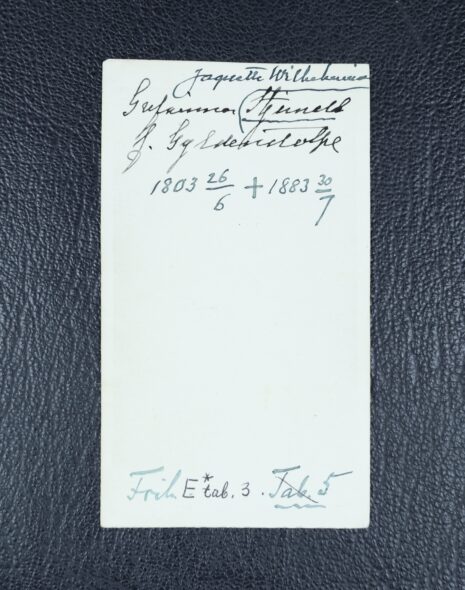 Jaquette Wilhelmina
Grefvinnan Stjerneld
f. Gyldenstolpe
1803 26/6 + 1883 30/7
Frih. E* tab. 3. Tab. 5